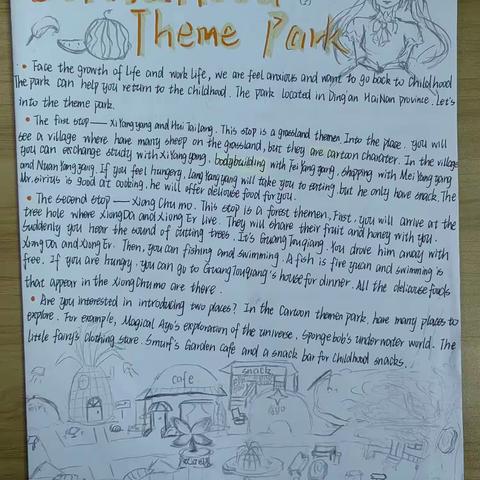 Theme Park
• Face the growth of life and work life, we are feel anxious and want to go back to Childhood
The park can help you return to the childhood. The park located in Ding'an HaiNan province. Let's
into the theme park.
• The first stop — Xi Yang yang and Hui Tai lang. This stop is a grassland themen. Into the place, you will
see a village where have many sheep on the grassland, but they are cartoon charater. In the village
you can exchange study with Xi Yang yang, bodybuilding with Fei Yang yang, shopping with Mei Yang yang
and Nuan Yang yang. If you feel hungery, Lan Yang yang will take you to eating but he only have snack. The
Mr. sirius is good at cooking, he will offer deliouse food for you.
• The second stop — Xiong Chu mo. This stop is a forest themen, First, you will arrive at the
tree hole where Xiong Da and Xiong Er live. They will share their fruit and honey with you.
Suddenly you hear the sound of cutting trees, It's Guang Tou qiang. You drove him away with
Xiong Da and Xiong Er. Then, you can fishing and swimming. A fish is five yuan and swimming is
free. If you are hungry, you can go to Guang Tou qiang's house for dinner. All the deliouse foods
that appear in the Xiong Chu mo are there.
• Are you interested in introducing two places? In the Cartoon themen park, have many places to
explore. For example, Magical Ayo's exploration of the universe, Spongebob's underwater world. The
little fairy's clothing store. Smurf's Garden cafe and a snack bar for childhood snacks.
cafe
snack